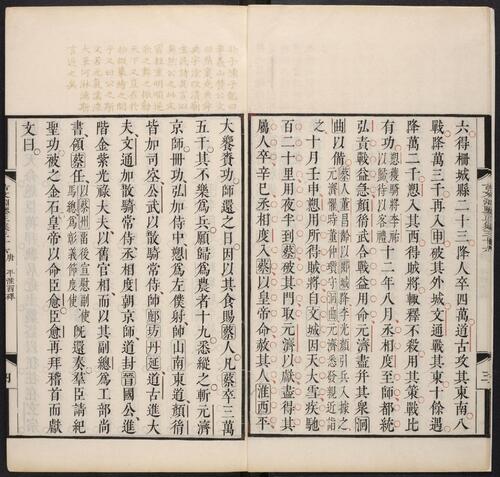 六得柵城縣二十三降人卒四萬道古攻其東南八
戰降萬三千再入申破其外城文通戰其東十餘遇
降萬二千愬入其西得賊將輒釋不殺用其策戰比
有功愬獲騎將李祐以歸待以客禮十二年八月丞相度至師都統
弘責戰益急顏胤武合戰益用命元濟盡并其衆洄
曲以備蔡人董昌齡以郾城降李光顏引兵入據之元濟懼時董仲瓊守洄曲元濟悉發親近詣
之十月壬申愬用所得賊將自文城因天大雪疾馳
百二十里用夜半到蔡破其門取元濟以獻盡得其
屬人卒辛巳丞相度入蔡以皇帝命赦其人淮西平
大饗賚功師還之日因以其食賜蔡人凡蔡卒三萬
五千其不樂爲兵願歸爲農者十九悉縱之斬元濟
京師冊功弘加侍中愬爲左僕射帥山南東道顏胤
皆加司空公武以散騎常侍帥鄜坊丹延道古進大
夫文通加散騎常侍丞相度朝京師道封晉國公進
階金紫光祿大夫以舊官相而以其副總爲工部尚
書領蔡任以蔡州留後宣慰副使馬總爲彰義節度使既還奏羣臣請紀
聖功被之金石皇帝以命臣愈臣愈再拜稽首而獻
文曰